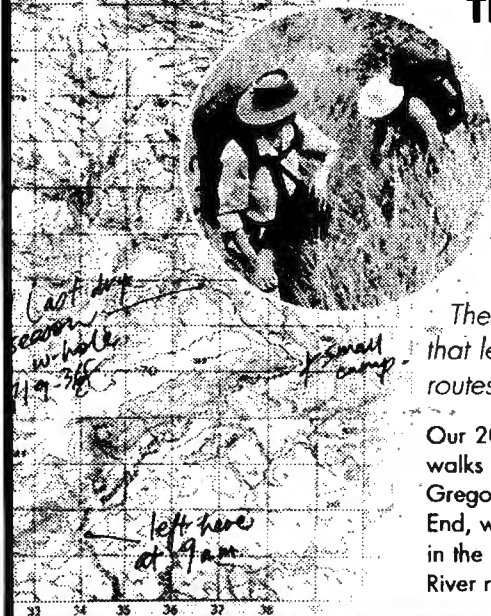 Th
Last dry
season
w-hole
small
camp
left here
at 9 am
33 34 35 36 37 38
The
that le
routes
Our 20
walks
Grego
End, w
in the
River r